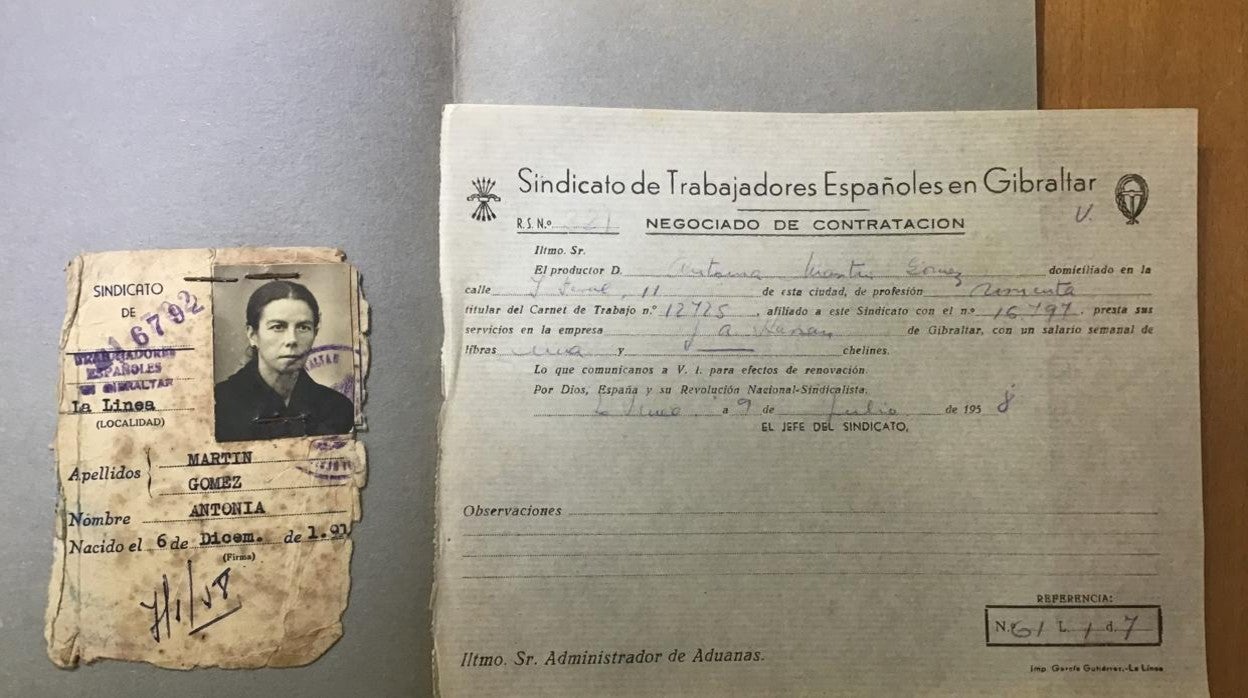 SINDICATO
DE
16792
TRABAJADORES
ESPAÑOLES
EN GIBRALTAR
La Linea
(LOCALIDAD)
Apellidos MARTIN
GOMEZ
Nombre ANTONIA
Nacido el 6 de Dicem. de 1.91
(Firma)
7/1/58
Sindicato de Trabajadores Españoles en Gibraltar
R.S. N.º 221 NEGOCIADO DE CONTRATACION V.
Iltmo. Sr.
El productor D. Antonia Martin Gómez domiciliado en la
calle 11 de esta ciudad, de profesión
titular del Carnet de Trabajo n.º 12725, afiliado a este Sindicato con el n.º 16.797, presta sus
servicios en la empresa J A de Gibraltar, con un salario semanal de
libras una y — chelines.
Lo que comunicamos a V. I. para efectos de renovación.
Por Dios, España y su Revolución Nacional-Sindicalista.
La Linea a 9 de Julio de 1958
EL JEFE DEL SINDICATO,
Observaciones
REFERENCIA:
N.º 61 L. 1 d. 7
Iltmo. Sr. Administrador de Aduanas.
Imp. García Gutiérrez.-La Línea